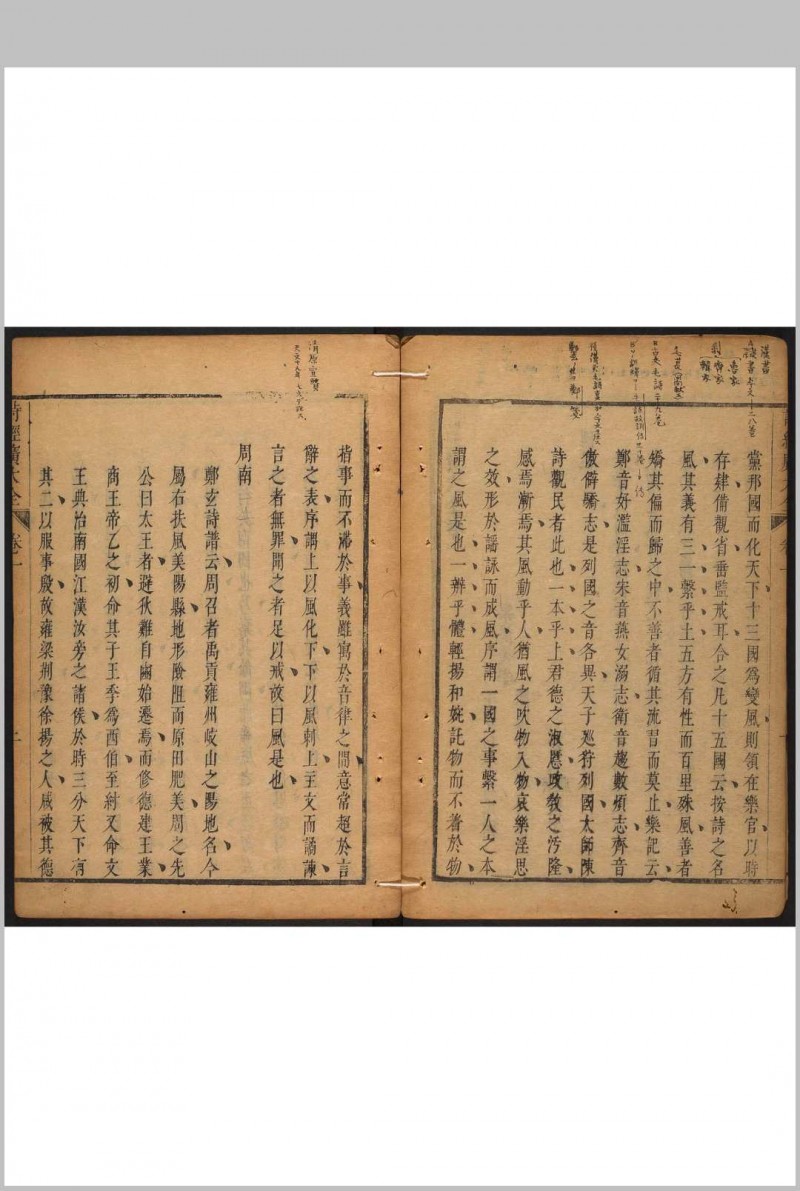 黨邦國而化天下十三國爲變風則領在樂官以時
存肄備觀省垂監戒耳合之凡十五國云按詩之名
風其義有三一繫乎土五方有性而百里殊風善者
矯其偏而歸之中不善者循其流冒而莫止樂記云
鄭音好濫淫志宋音燕女溺志衛音趨數煩志齊音
傲僻驕志是列國之音各異天子廵狩列國太師陳
詩觀民者此也一本乎上君德之淑慝政敎之汚隆
感焉漸焉其風動乎人猶風之吹物入物哀樂淫思
之效形於謡詠而成風序謂一國之事繫一人之本
謂之風是也一辨乎體輕揚和婉託物而不著於物
指事而不滯於事義雖寓於音律之間意常超於言
辭之表序謂上以風化下下以風刺上主文而譎諫
言之者無罪聞之者足以戒故曰風是也
周南
鄭玄詩譜云周召者禹貢雍州岐山之陽地名今
屬右扶風美陽縣地形險阻而原田肥美周之先
公曰太王者避狄難自豳始遷焉而修德建王業
商王帝乙之初命其子王季爲西伯至紂又命文
王典治南國江漢汝旁之諸侯於時三分天下有
其二以服事殷故雍梁荆豫徐揚之人咸被其德
詩經廣大全
卷一
二